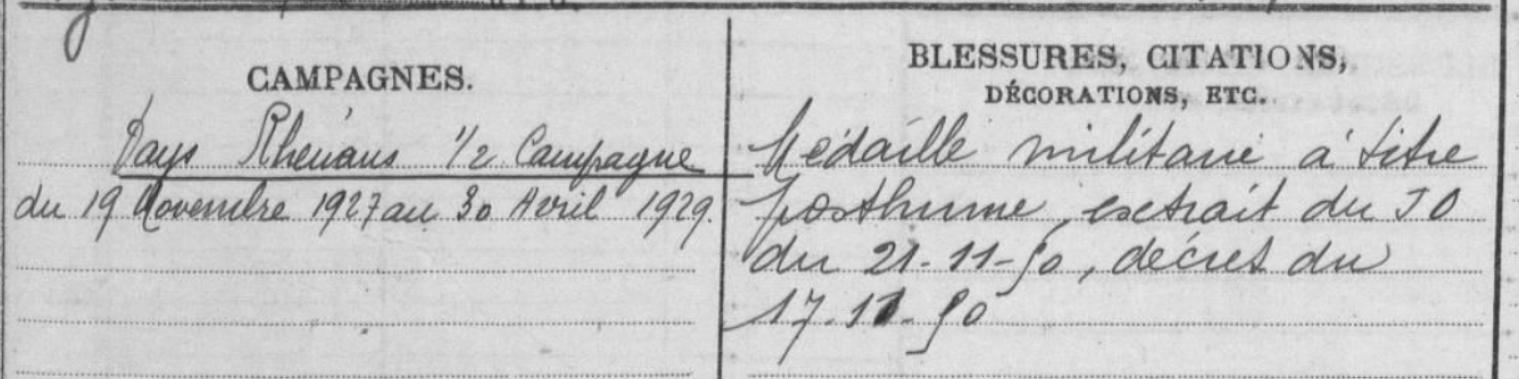 CAMPAGNES.
Pays Rhénans 1/2 Campagne
du 19 Novembre 1927 au 30 Avril 1929.
BLESSURES, CITATIONS,
DÉCORATIONS, ETC.
Médaille militaire à titre
posthume, extrait du JO
du 21-11-50, décret du
17-11-50